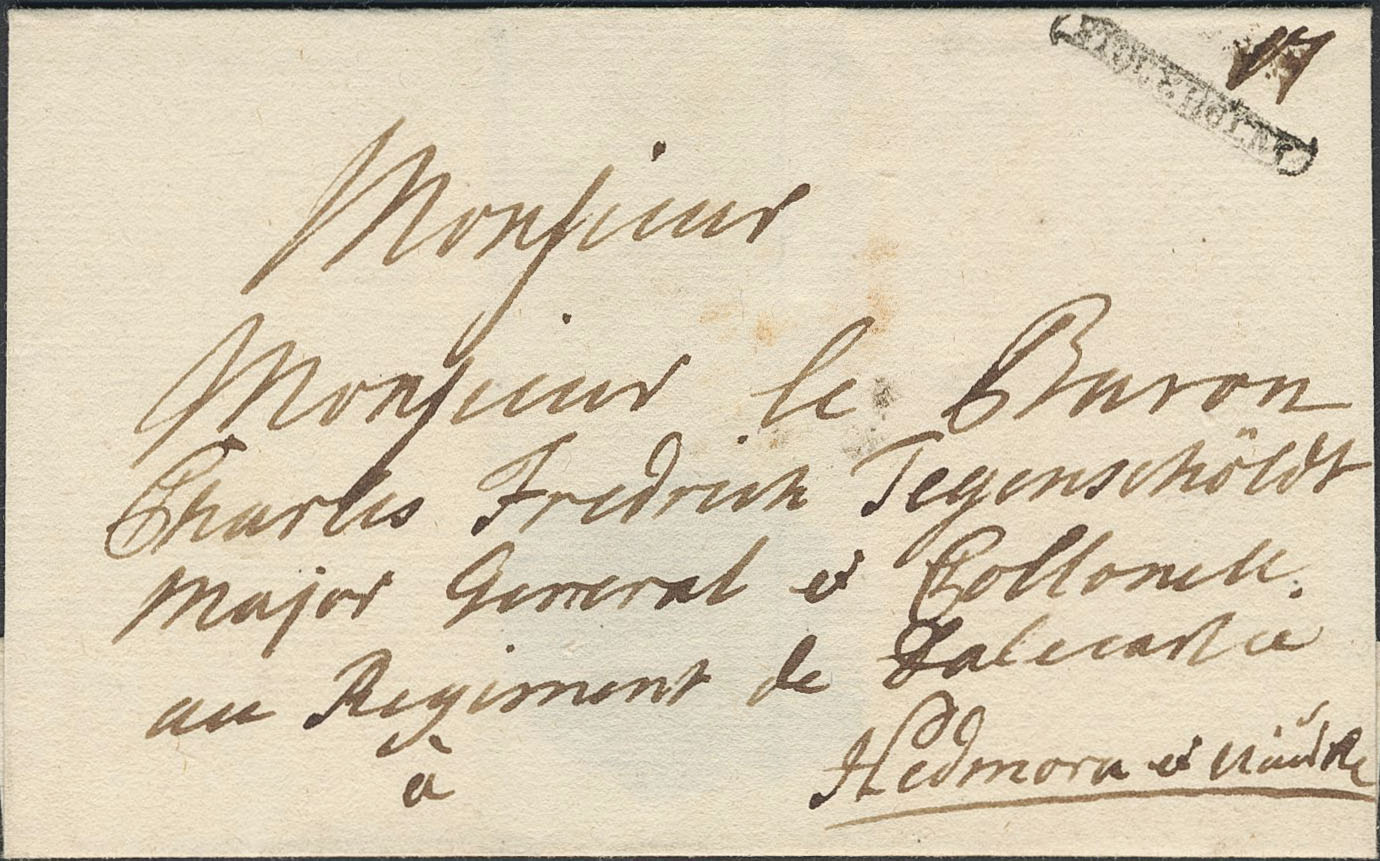 Monsieur
Monsieur le Baron
Charles Fredrich Tegenschöldt
Major General et Collonell.
au Regiment de Dalecarlie
à
Hedmora et